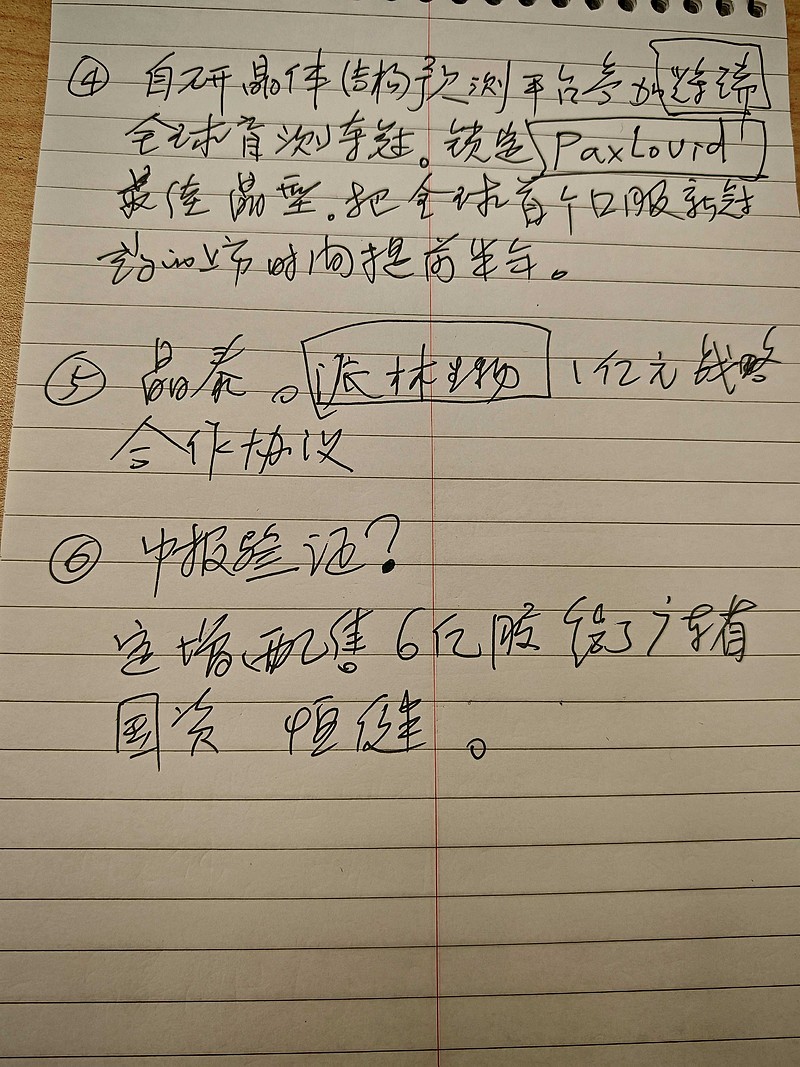 ④ 自研晶体结构预测平台参加辉瑞
全球盲测夺冠。锁定 Paxlovid
最佳晶型。把全球首个口服新冠
药的上市时间提前半年。
⑤ 晶泰。派林生物 1亿元战略
合作协议
⑥ 中报验证？
定增配售6亿股给了广东省
国资 恒健。